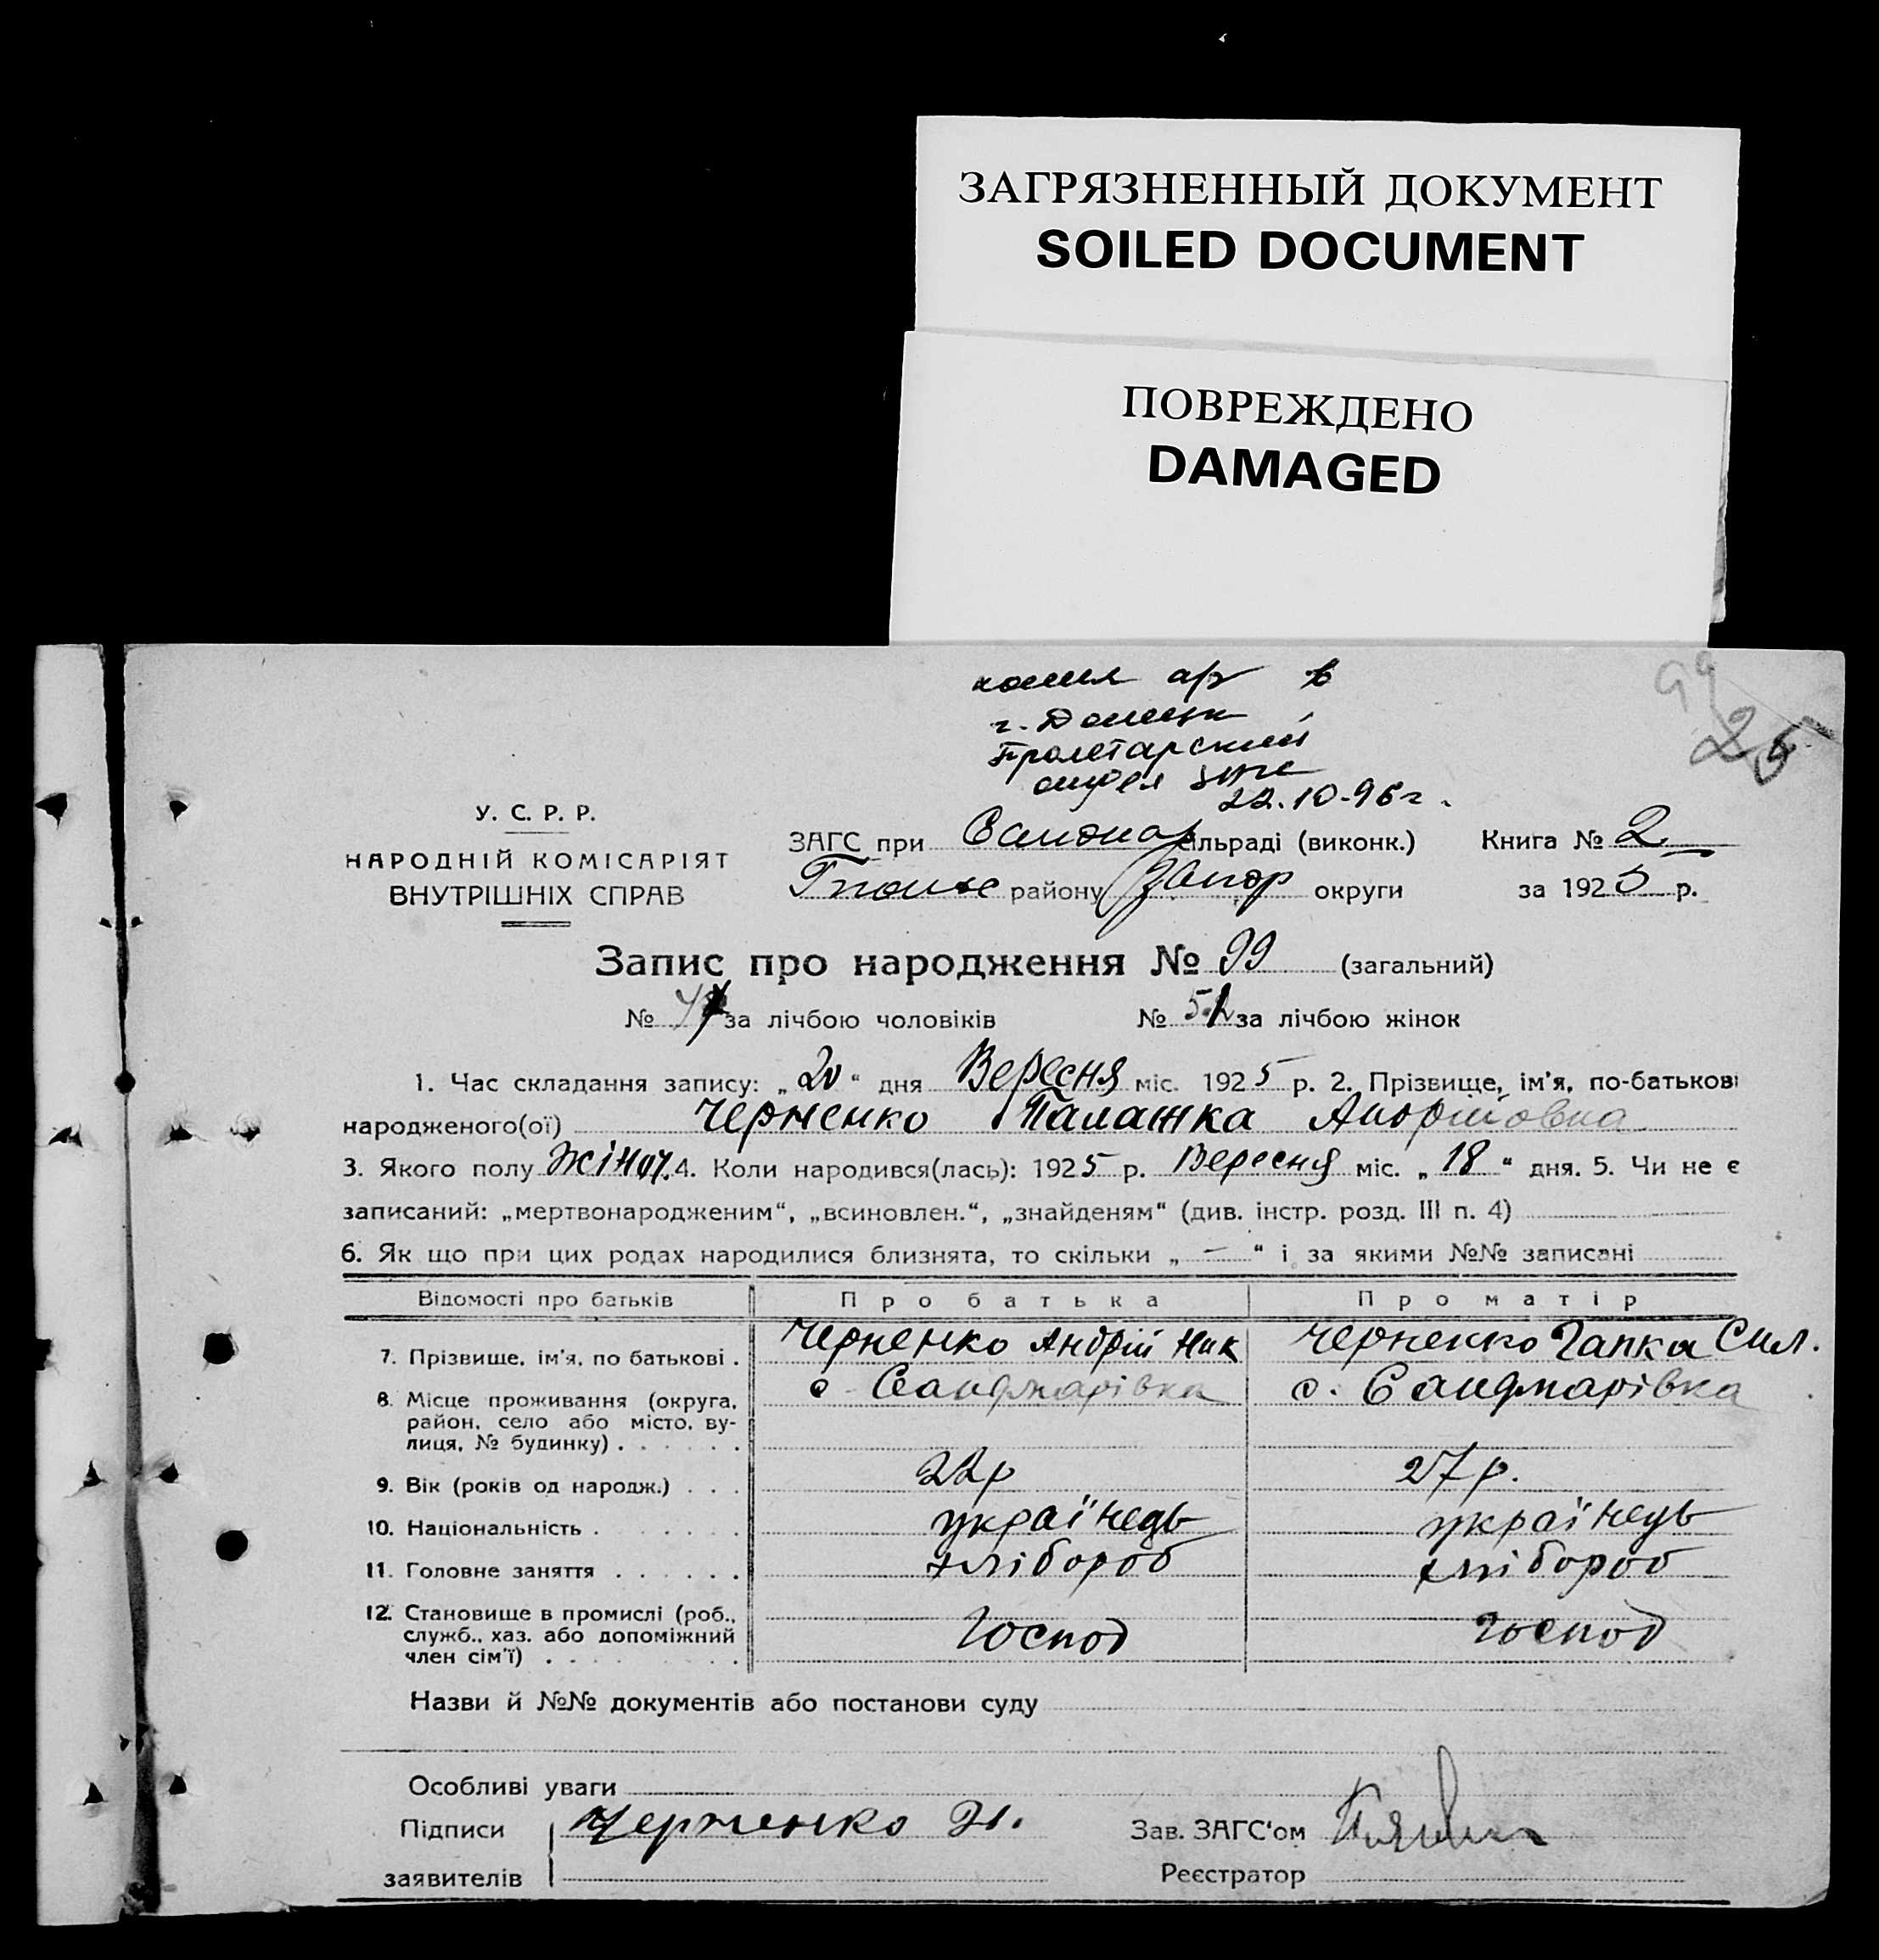 ЗАГРЯЗНЕННЫЙ ДОКУМЕНТ
SOILED DOCUMENT
ПОВРЕЖДЕНО
DAMAGED
копия а/з в
г. Донецк
Пролетарский
отдел ЗАГС
22.10.96 г.
99
25
У. С. Р. Р.
НАРОДНІЙ КОМІСАРІЯТ
ВНУТРІШНІХ СПРАВ
ЗАГС при Санджар сільраді (виконк.) Книга № 2
району Запор округи за 1925 р.
Запис про народження № 99 (загальний)
№ за лічбою чоловіків № 51 за лічбою жінок
1. Час складання запису: „20“ дня Вересня міс. 1925 р. 2. Прізвище, ім'я, по-батькові
народженого(ої) Черненко Палажка Андрійовна
3. Якого полу жіноч. 4. Коли народився(лась): 1925 р. Вересня міс. „18“ дня. 5. Чи не є
записаний: „мертвонародженим“, „всиновлен.“, „знайденям“ (див. інстр. розд. III п. 4)
6. Як що при цих родах народилися близнята, то скільки „—“ і за якими №№ записані
Відомості про батьків Про батька Про матір
7. Прізвище, ім'я, по батькові . Черненко Андрій Ник Черненко Гапка Сил.
8. Місце проживання (округа, с. Санджарівка с. Санджарівка
район, село або місто, ву-
лиця, № будинку) . . . . . .
9. Вік (років од народж.) . . . 22 р 27 р.
10. Національність . . . . . . українець українець
11. Головне заняття . . . . . . хлібороб хлібороб
12. Становище в промислі (роб.,
служб., хаз. або допоміжний Господ Господ
член сім'ї) . . . . . . . . .
Назви й №№ документів або постанови суду
Особливі уваги
Підписи Черненко Зав. ЗАГС'ом
заявителів Реєстратор